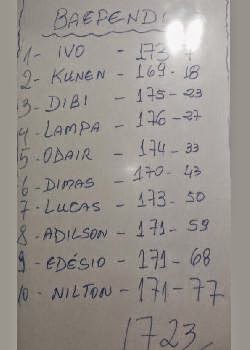 BAEPENDI
1- IVO - 173-7
2- KUNEN - 169-18
3- DIBI - 175-23
4- LAMPA - 176-27
5- ODAIR - 174-33
6- DIMAS - 170-43
7- LUCAS - 173-50
8- ADILSON - 171-59
9- EDÉSIO - 171-68
10- NILTON - 171-77
1723